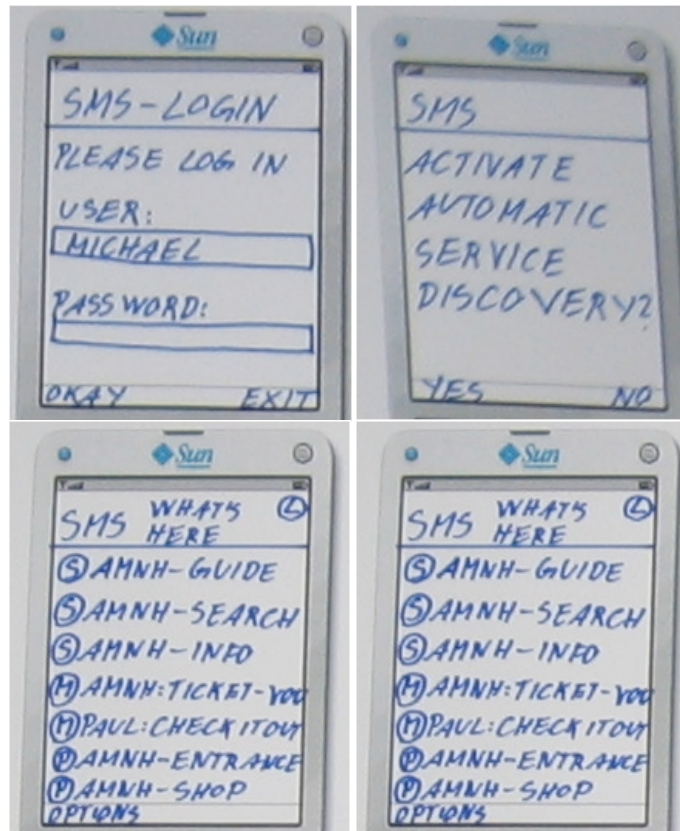 Sun
SMS-LOGIN
PLEASE LOG IN
USER:
MICHAEL
PASSWORD:
OKAY EXIT
Sun
SMS
ACTIVATE
AUTOMATIC
SERVICE
DISCOVERY?
YES NO
Sun
SMS WHAT'S HERE L
S AMNH-GUIDE
S AMNH-SEARCH
S AMNH-INFO
M AMNH:TICKET-YOU
M PAUL:CHECK IT OUT
P AMNH-ENTRANCE
P AMNH-SHOP
OPTIONS
Sun
SMS WHAT'S HERE L
S AMNH-GUIDE
S AMNH-SEARCH
S AMNH-INFO
M AMNH:TICKET-YOU
M PAUL:CHECK IT OUT
P AMNH-ENTRANCE
P AMNH-SHOP
OPTIONS